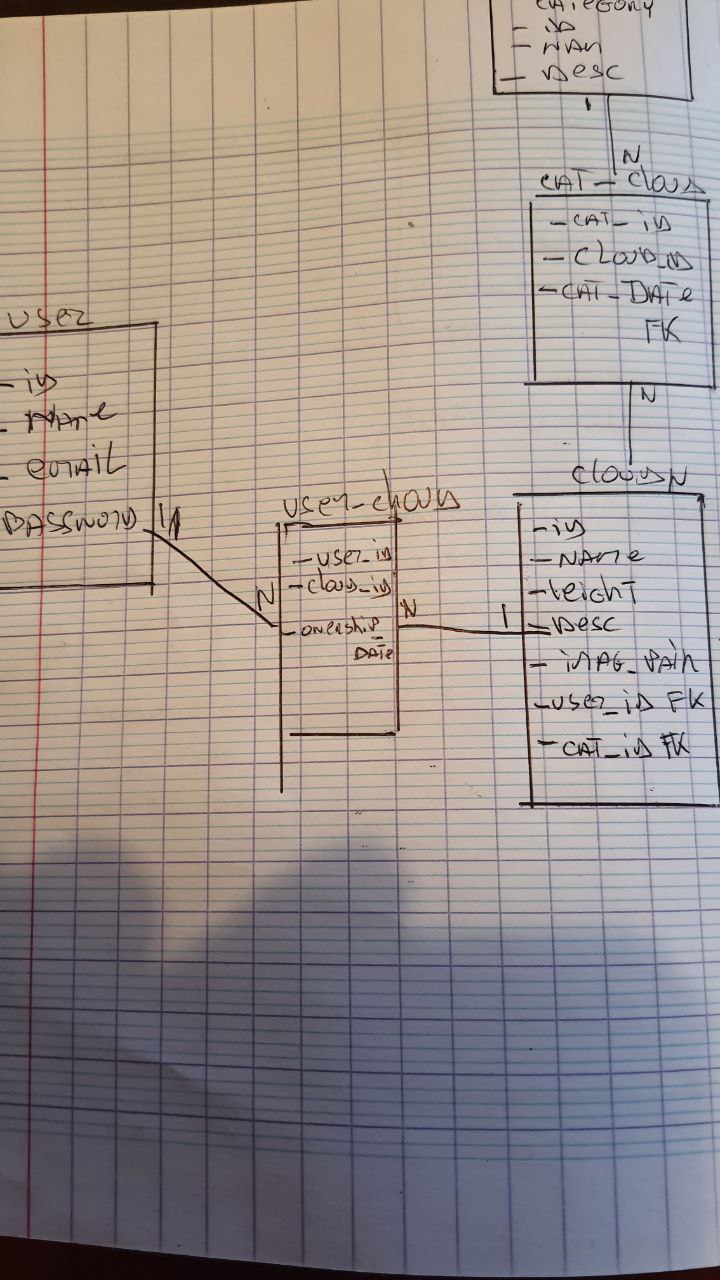 CATEGORY
- iD
- NAM
- Desc
1
N
CAT-Cloud
- CAT_iD
- CLOUD_iD
- CAT_DATe
FK
N
User
- iD
- NAMe
- eMAiL
PASSWORD
1
N
User-cloud
- User_iD
- cloud_iD
- onership_
DATe
N
1
Clouds N
- iD
- NAMe
- HeighT
- Desc
- iMAG_PATh
- User_iD FK
- CAT_iD FK